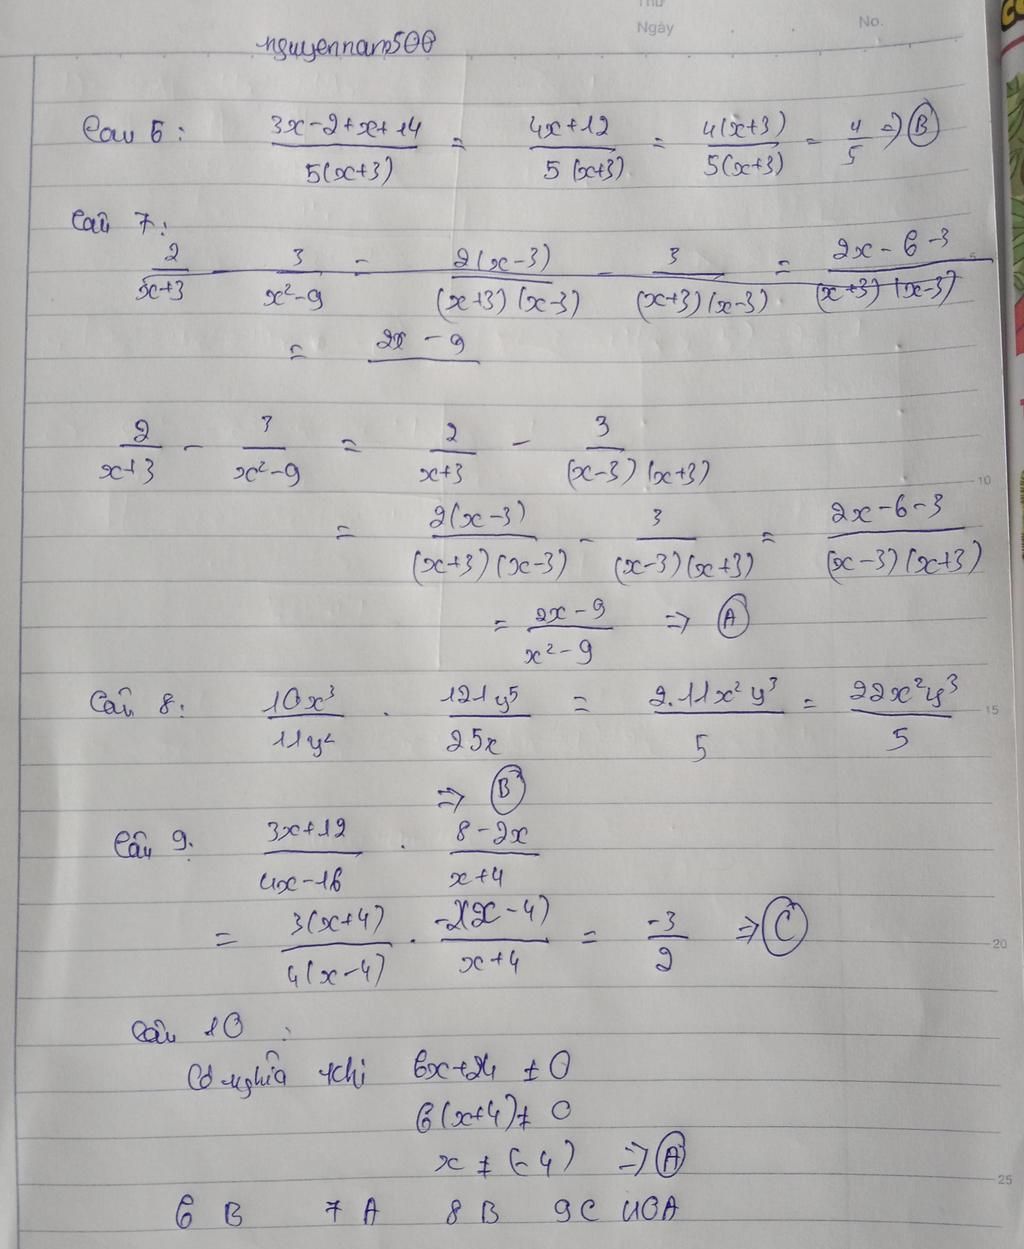 Thứ
Ngày No.
nguyennam500
Câu 6: (3x-2+x+14)/(5(x+3)) = (4x+12)/(5(x+3)) = (4(x+3))/(5(x+3)) = 4/5 => B
Câu 7:
2/(x+3) - 3/(x²-9) = (2(x-3))/((x+3)(x-3)) - 3/((x+3)(x-3)) = (2x-6-3)/((x+3)(x-3))
= 2x-9
2/(x+3) - 3/(x²-9) = 2/(x+3) - 3/((x-3)(x+3))
10
= (2(x-3))/((x+3)(x-3)) - 3/((x-3)(x+3)) = (2x-6-3)/((x-3)(x+3))
= (2x-9)/(x²-9) => A
Câu 8: (10x³)/(11y²) . (121y⁵)/(25x) = (2.11x²y³)/5 = (22x²y³)/5
15
=> B
Câu 9. (3x+12)/(4x-16) . (8-2x)/(x+4)
= (3(x+4))/(4(x-4)) . (-2(x-4))/(x+4) = (-3)/2 => C
20
Câu 10:
Có nghĩa khi 6x+24 ≠ 0
6(x+4) ≠ 0
x ≠ (-4) => A
25
6 B 7 A 8 B 9C 10A